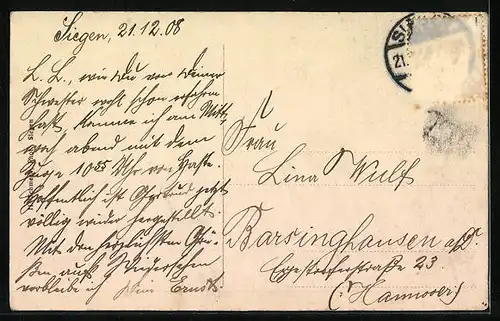 Siegen, 21.12.08
L. L., wie Du von Deiner
Schwester wohl schon erfahren
hast, komme ich am Mitt-
woch abend mit dem
Zuge 10 55 Uhr von Haste.
Hoffentlich ist jetzt
völlig wieder hergestellt.
Mit den herzlichsten Grü-
ßen, auf Wiedersehen
verbleibe ich Dein Ernst
Frau
Lina Wulf
Barsinghausen a/D.
Egestorferstraße 23
(Hannover)
SI
21.